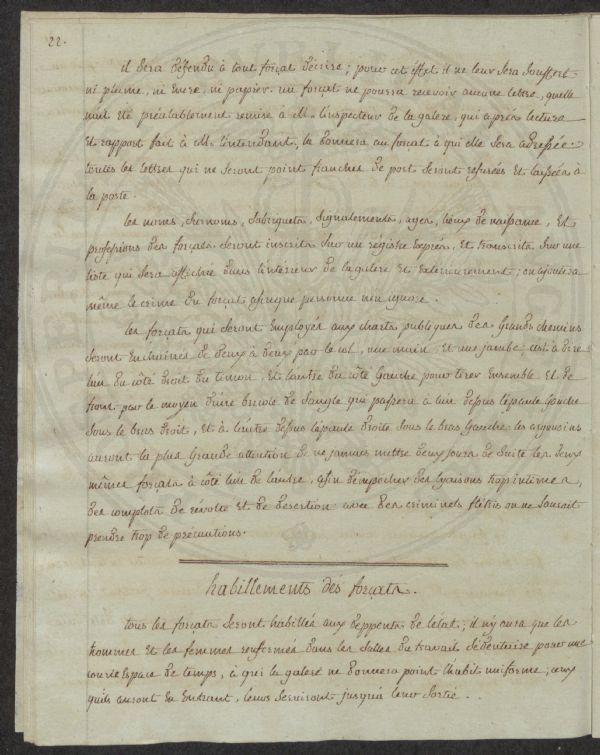 22.
il sera deffendu à tout forçat d'écrire; pour cet effet il ne leur sera souffert
ni plume, ni encre, ni papier. un forçat ne pourra recevoir aucune lettre, quelle
n'ait été préalablement remise à M. l'inspecteur de la galere, qui après lecture
et rapport fait à M. l'intendant, la donnera au forçat à qui elle sera adressée.
toutes les lettres qui ne seront point franches de port seront refusées et laissées à
la poste.
les noms, surnoms, subriquets, signalements, ages, lieux de naissance, et
professions des forçats seront inscrits sur un registre exprès, et transcrits sur une
liste qui sera affichée dans l'intérieur de la galere et extérieurement; on ajoutera
même le crime du forçat afin que personne n'en ignore.
les forçats qui seront employés aux chariots publiques des grands chemins
seront enchainés de deux à deux par le col, une main et une jambe; c'est à dire
l'un du côté droit du timon, et l'autre du côté gauche pour tirer ensemble et de
front par le moyen d'une bricole de sangle qui passera a l'un dessus l'épaule gauche
sous le bras droit, et à l'autre dessus l'épaule droite sous le bras gauche. les argousins
auront la plus grande attention de ne jamais mettre deux jours de suite les deux
mêmes forçats à côté l'un de l'autre, afin d'empêcher des lyaisons trop intimes,
des complots de révolte et de desertion avec des criminels flétris on ne sauroit
prendre trop de précautions.
habillements dés forçats.
tous les forçats seront habillés aux deppents de l'état; il n'y aura que les
hommes et les femmes renfermés dans les salles du travail sédentaire pour une
courte espace de temps, à qui la galere ne donnera point l'habit uniforme; ceux
qu'ils auront en entrant, leurs serviront jusqu'à leur sortie.